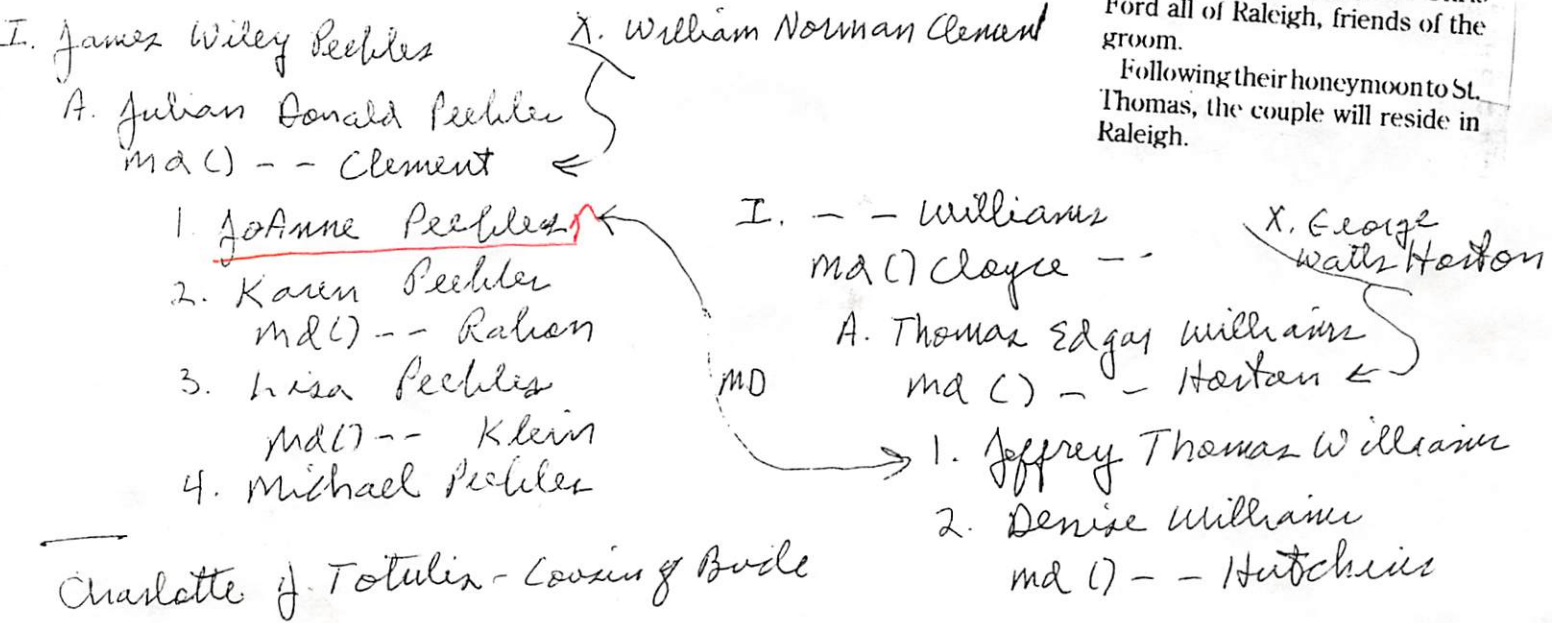 I. James Wiley Peebles
A. Julian Donald Peebles
md () - - Clement
1. JoAnne Peebles
2. Karen Peebles
md () - - Rabon
3. Lisa Peebles
md () - - Klein
4. Michael Peebles
Charlotte J. - Cousin of Bride
X. William Norman Clement
MD
Ford all of Raleigh, friends of the
groom.
Following their honeymoon to St.
Thomas, the couple will reside in
Raleigh.
I. - - Williams
md () Cloyce - -
A. Thomas Edgar Williams
md () - - Horton
1. Jeffrey Thomas Williams
2. Denise Williams
md () - - Hutchins
X. George
Watts Horton